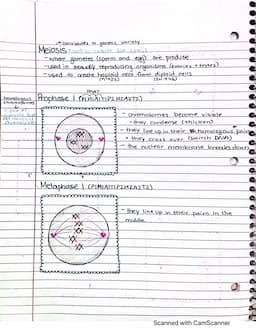 Meiosis
- where gametes (sperm and egg) are produce
- used in sexually reproducing organisms
- used to create haploid cells from diploid cells
Prophase 1
- chromosomes become visible
• they condense (thicken)
- they line up in their homologous pairs
• they cross over (switch DNA)
- the nuclear membrane breaks down
Metaphase 1
- they line up in their pairs in the
middle
Scanned with CamScanner